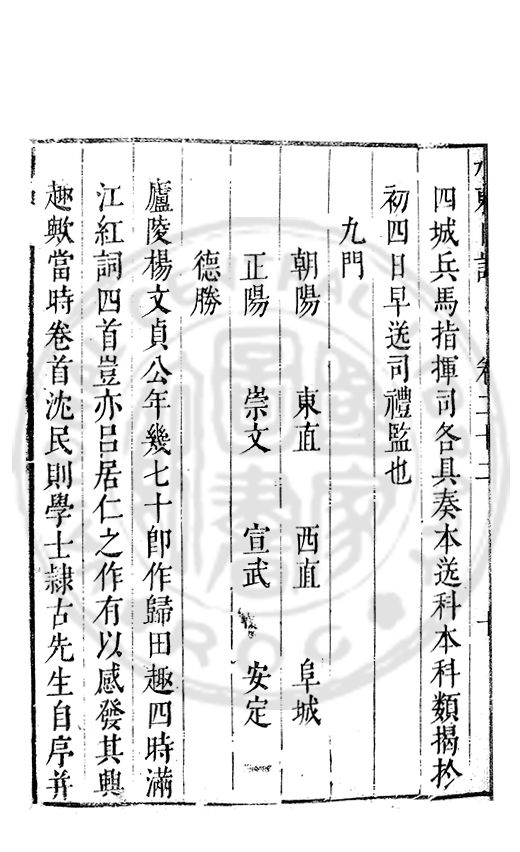 水東日記 卷二十二 十
四城兵馬指揮司各具奏本送科本科類揭於
初四日早送司禮監也
九門
朝陽 東直 西直 阜城
正陽 崇文 宣武 安定
德勝
廬陵楊文貞公年幾七十卽作歸田趣四時滿
江紅詞四首豈亦呂居仁之作有以感發其興
趣歟當時卷首沈民則學士隸古先生自序并